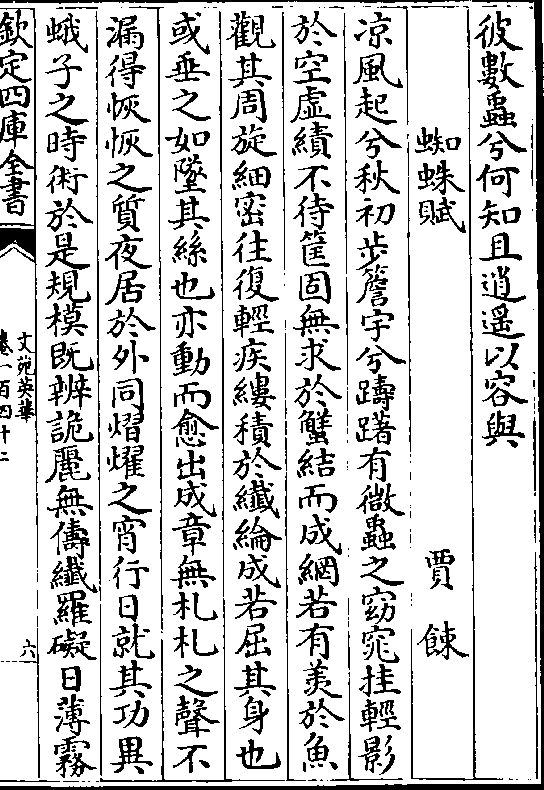 彼數蟲兮何知且逍遥以容與
蜘蛛賦　賈餗
凉風起兮秋初步簷宇兮躊躇有微蟲之窈窕挂輕影
於空虛績不待筐固無求於蟹結而成網若有羡於魚
觀其周旋細密往復輕疾縷積於纖綸成若屈其身也
或垂之如墜其絲也亦動而愈出成章無札札之聲不
漏得恢恢之質夜居於外同熠燿之宵行日就其功異
蛾子之時術於是規模既辨詭麗無儔纖羅礙日薄霧
欽定四庫全書
文苑英華
卷一百四十二
六